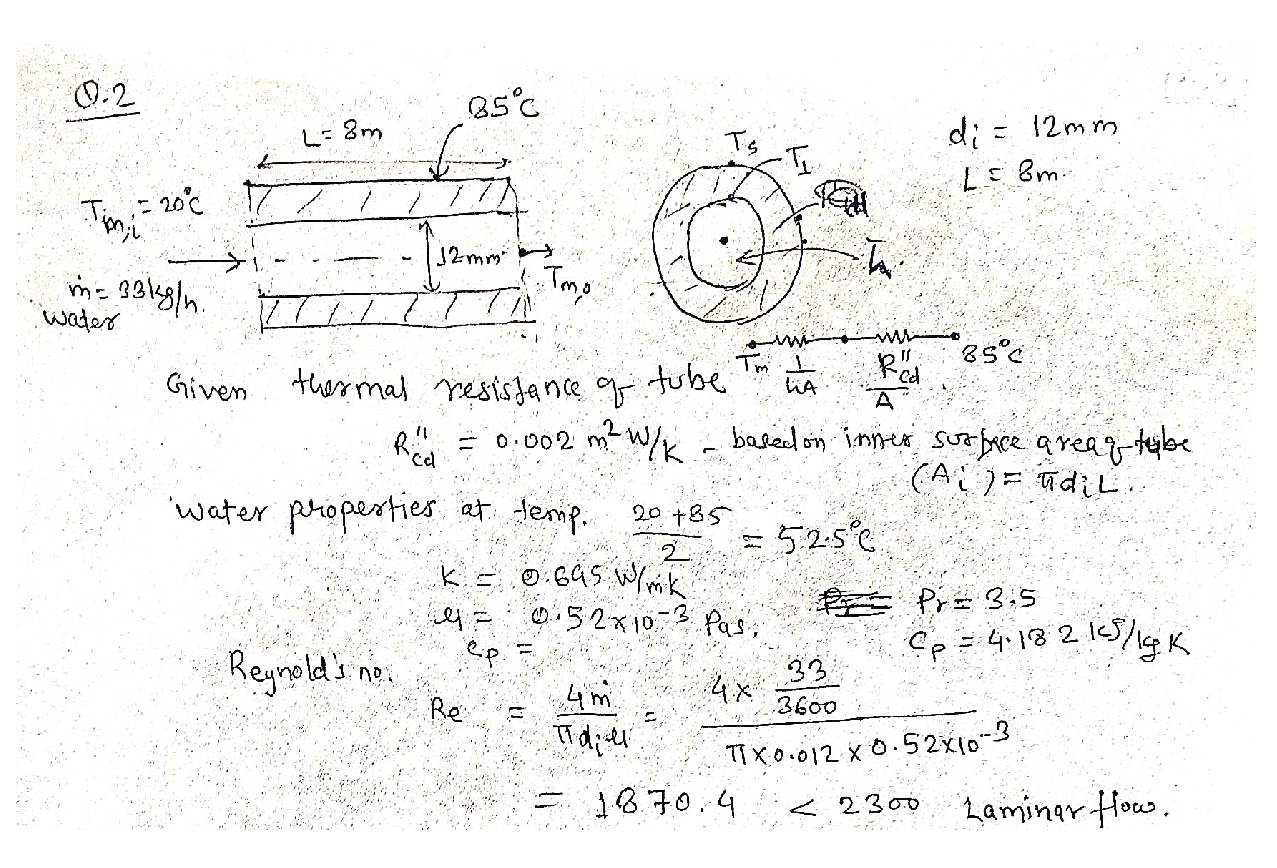 Q.2
85°C
L = 8m
T_{m,i} = 20°C
12mm
T_{m,o}
ṁ = 33kg/h
water
T_s
T_I
d_i = 12mm
L = 8m.
T_m 1/hA R''_{cd}/A 85°C
Given thermal resistance of tube
R''_{cd} = 0.002 m² W/K - based on inner surface area of tube
(A_i) = πd_iL.
water properties at temp. (20+85)/2 = 52.5°C
K = 0.645 W/mK
μ = 0.52×10^{-3} Pas. Pr = 3.5
Cp = Cp = 4.182 kJ/kg K
Reynold's no.
Re = 4ṁ/(πd_iμ) = (4 × 33/3600)/(π×0.012×0.52×10^{-3})
= 1870.4 < 2300 Laminar flow.